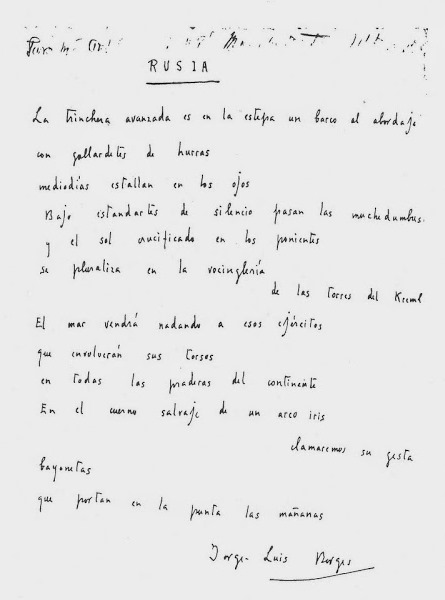 RUSIA
La trinchera avanzada es en la estepa un barco al abordaje
con gallardetes de hurras
mediodías estallan en los ojos
Bajo estandartes de silencio pasan las muchedumbres
y el sol crucificado en los ponientes
se pluraliza en la vocinglería
de las torres del Kreml
El mar vendrá nadando a esos ejércitos
que envolverán sus torsos
en todas las praderas del continente
En el cuerno salvaje de un arco iris
clamaremos su gesta
bayonetas
que portan en la punta las mañanas
Jorge-Luis Borges